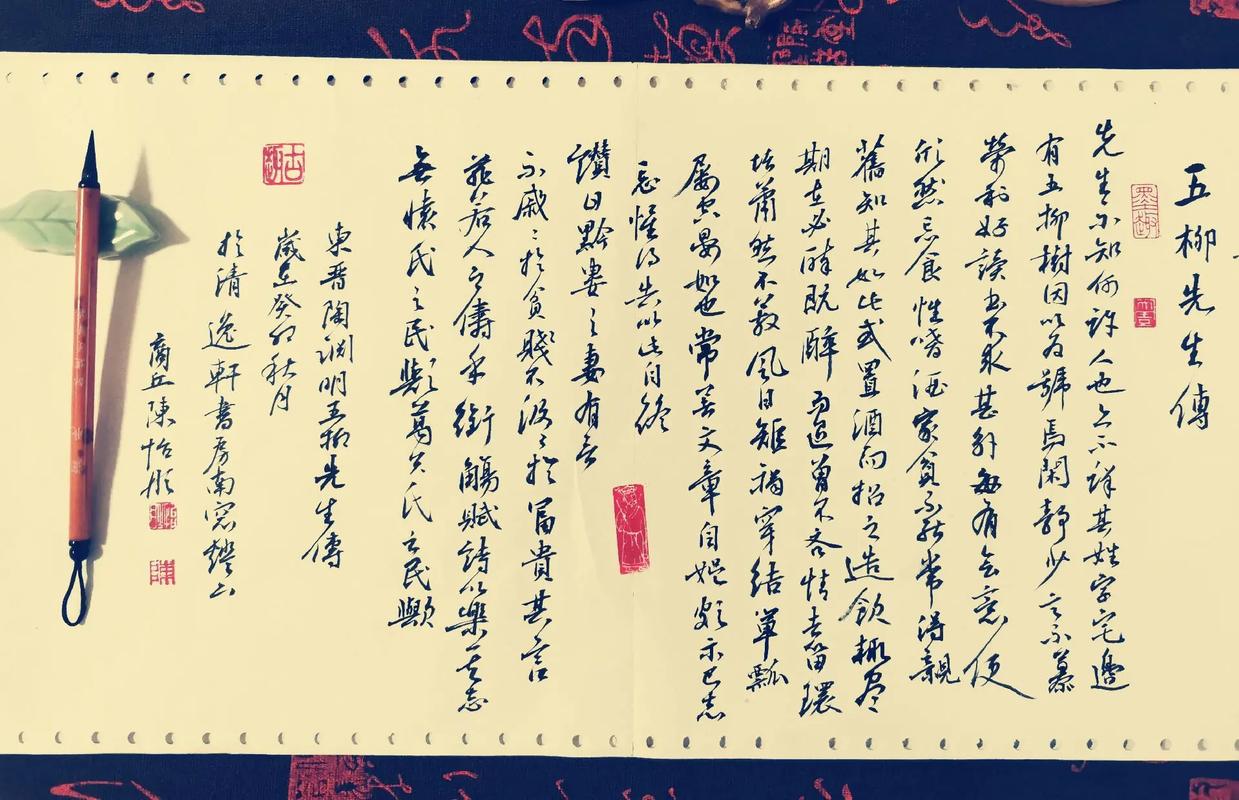 五柳先生傳
墨趣
先生不知何許人也亦不詳其姓字宅邊
有五柳樹因以為號焉閑靜少言不慕
榮利好讀書不求甚解每有會意便
欣然忘食性嗜酒家貧不能常得親
舊知其如此或置酒而招之造飲輒盡
期在必醉既醉而退曾不吝情去留環
堵蕭然不蔽風日短褐穿結簞瓢
屢空晏如也常著文章自娛頗示己志
忘懷得失以此自終
讚曰黔婁之妻有言
不戚〻於貧賤不汲〻於富貴其言
茲若人之儔乎銜觴賦詩以樂其志
無懷氏之民歟葛天氏之民歟
東晉陶淵明五柳先生傳
歲在癸卯秋月
於清逸軒書房南窓鐙下
商丘陳怡彤
陳